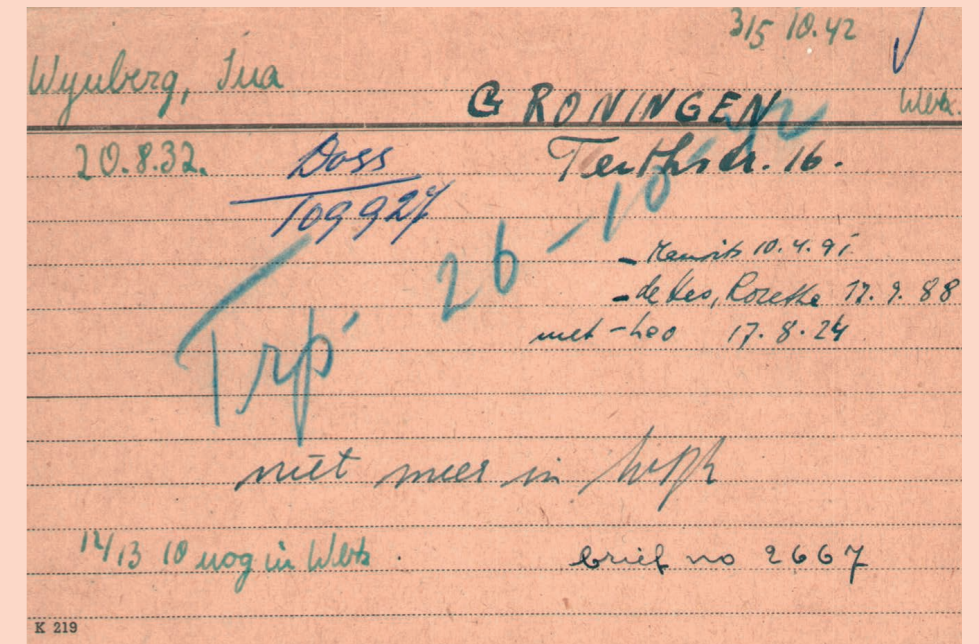 3/5 10.42
Wynberg, Ina
GRONINGEN
Werk.
20.8.32.
Doss
109927
16.
Trp. 26-10-42
- Maurits 10.4.91
- de Leo, Rozette 17.9.88
met - Leo 17.8.24
niet meer in
12/13 10 nog in Werk.
brief no 2667
K 219